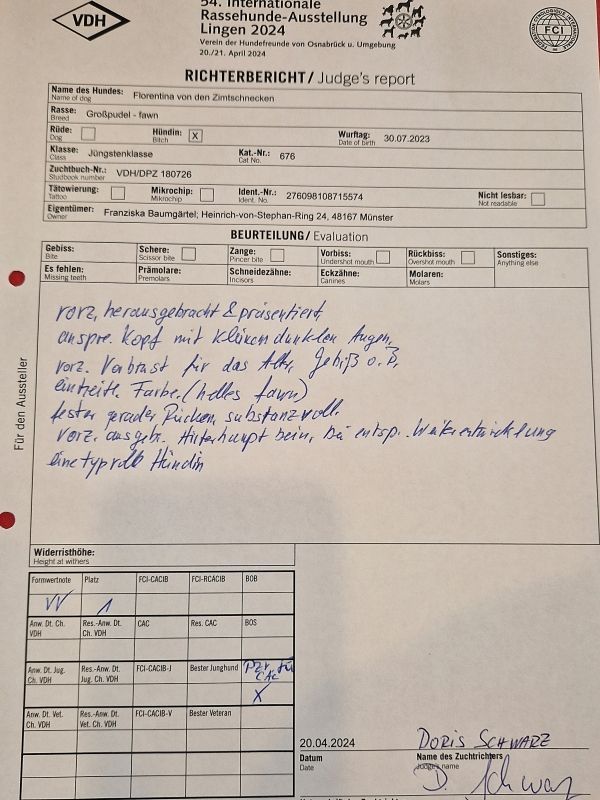 VDH
54. Internationale
Rassehunde-Ausstellung
Lingen 2024
Verein der Hundefreunde von Osnabrück u. Umgebung
20./21. April 2024
FCI
RICHTERBERICHT / Judge's report
Name des Hundes: Florentina von den Zimtschnecken
Name of dog
Rasse: Großpudel - fawn
Breed
Rüde: Hündin: X Wurftag: 30.07.2023
Dog Bitch Date of birth
Klasse: Jüngstenklasse Kat.-Nr.: 676
Class Cat No.
Zuchtbuch-Nr.: VDH/DPZ 180726
Studbook number
Tätowierung: Mikrochip: Ident.-Nr.: 276098108715574 Nicht lesbar:
Tattoo Mikrochip Ident. No. Not readable
Eigentümer: Franziska Baumgärtel; Heinrich-von-Stephan-Ring 24, 48167 Münster
Owner
BEURTEILUNG / Evaluation
Gebiss: Schere: Zange: Vorbiss: Rückbiss: Sonstiges:
Bite Scissor bite Pincer bite Undershot mouth Overshot mouth Anything else
Es fehlen: Prämolare: Schneidezähne: Eckzähne: Molaren:
Missing teeth Premolars Incisors Canines Molars
Für den Aussteller
vorz. herausgebracht & präsentiert,
anspre. Kopf mit dunklen Augen,
vorz. Vorbrust für das Alter, Gebiß o. B,
Farbe. (helles fawn)
fester gerader Rücken, substanzvoll.
vorz. ausgebr. Hinterhaupt bein, bei entsp. Weiterentwicklung
eine typvolle Hündin
Widerristhöhe:
Height at withers
Formwertnote Platz FCI-CACIB FCI-RCACIB BOB
VV 1
Anw. Dt. Ch. VDH Res.-Anw. Dt. Ch. VDH CAC Res. CAC BOS
Anw. Dt. Jug. Ch. VDH Res.-Anw. Dt. Jug. Ch. VDH FCI-CACIB-J Bester Junghund CAC
X
Anw. Dt. Vet. Ch. VDH Res.-Anw. Dt. Vet. Ch. VDH FCI-CACIB-V Bester Veteran
20.04.2024 DORIS SCHWARZ
Datum Name des Zuchtrichters
Date Judge's name
D. Schwarz